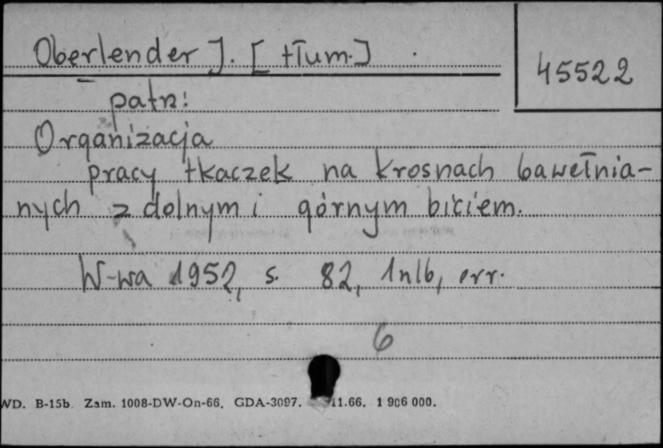 Oberlender J. [tłum.]
45522
patrz:
Organizacja
pracy tkaczek na krosnach bawełnia-
nych z dolnym i górnym biciem.
W-wa 1952, s. 82, 1 nlb, err.
6
WD. B-15b. Zam. 1008-DW-On-66. GDA-3097. 11.66. 1 906 000.